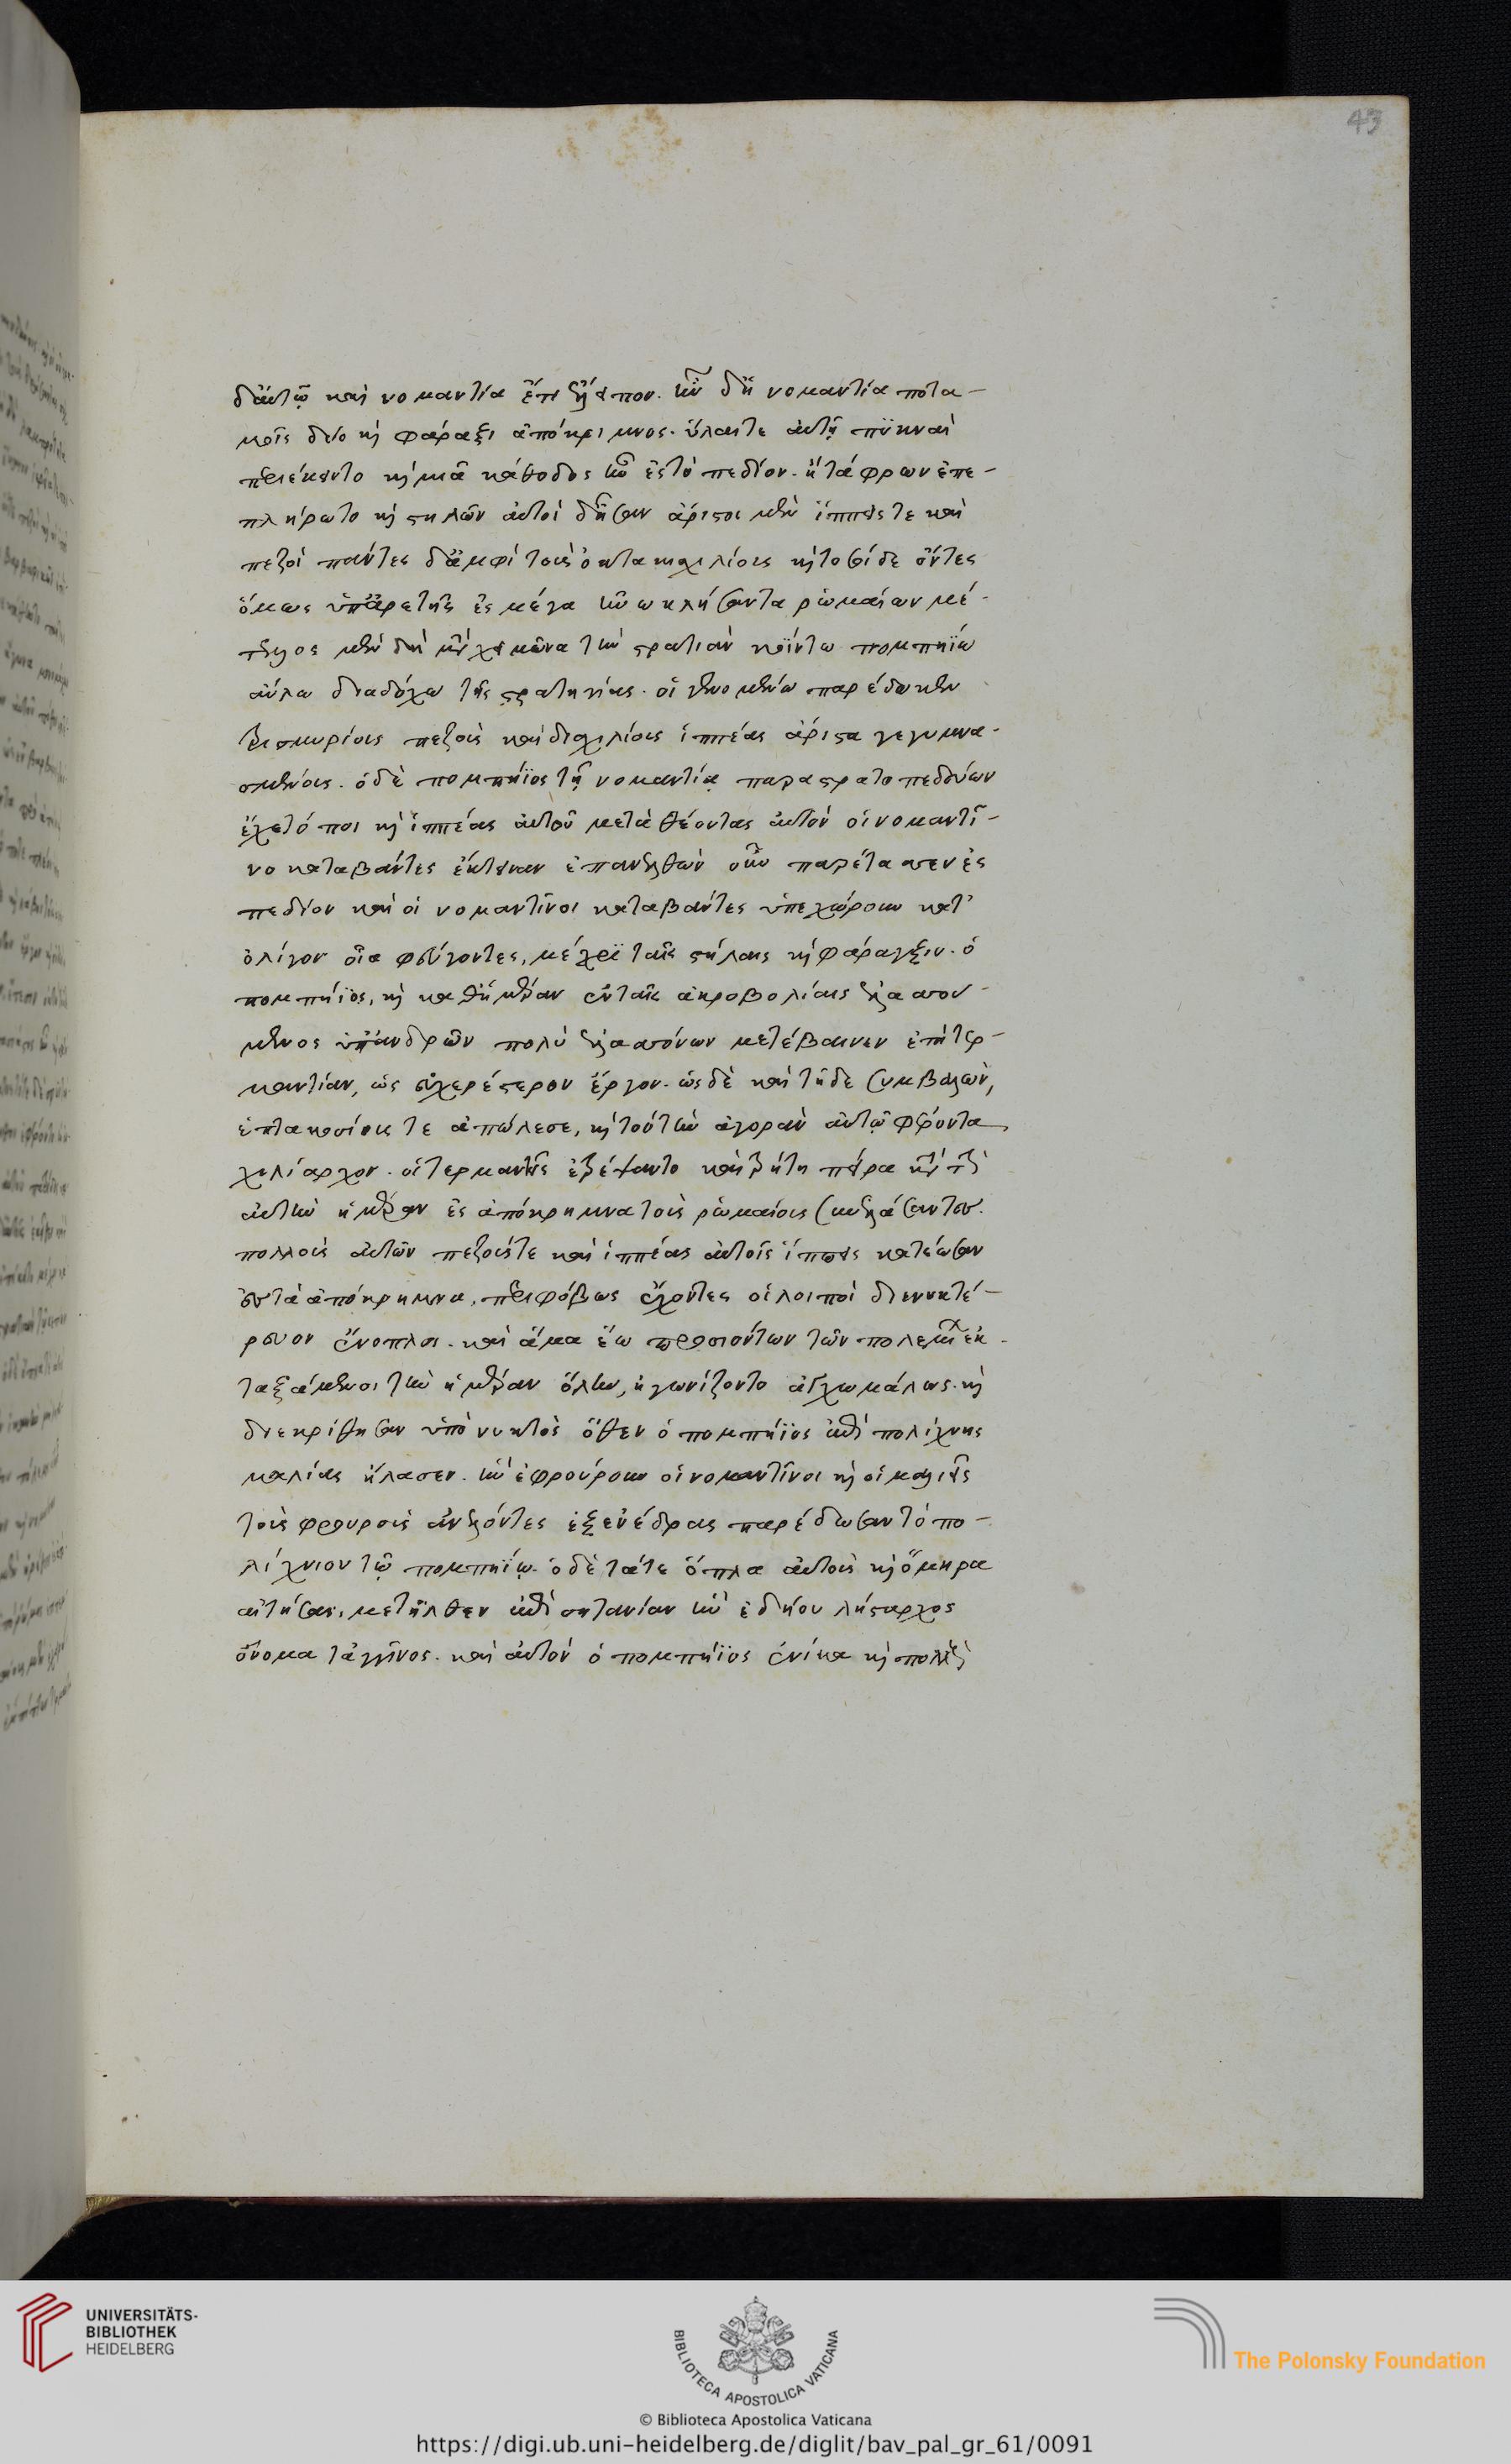 43
δ' αὐτῷ καὶ νομαντία ἔτι ἔλειπον. ἦν δ' ἡ νομαντία ποτα-
μοῖς δύο καὶ φάραξι ἀπόκριμνος. ὗλαι τε αὐτῇ πυκναὶ
περιέκειντο καὶ μία κάθοδος ἦν ἐς τὸ πεδίον. ἣ τάφρων ἐπε-
πλήρωτο καὶ στηλῶν αὐτοὶ δ' ἦσαν ἄριστοι μὲν ἱππεῖς τε καὶ
πεζοὶ πάντες δ' ἀμφὶ τοὺς ὀκτακισχιλίους καὶ τοσοίδε ὄντες
ὅμως ὑπ' ἀρετῆς ἐς μέγα ἠνώχλησαν τὰ ῥωμαίων μέ-
τελλος μὲν δὴ μετὰ χειμῶνα τὴν στρατιὰν κοΐντω πομπηίω
αὔλω διαδόχω τῆς στρατηγίας. οἱ γενομένω παρέδωκεν
τρισμυρίους πεζοὺς καὶ δισχιλίους ἱππέας ἄριστα γεγυμνα-
σμένους. ὁ δὲ πομπήϊος τῇ νομαντίᾳ παραστρατοπεδεύων
ᾤχετό ποι καὶ ἱππέας αὐτοῦ μεταθέοντας αὐτὸν οἱ νομαντῖ-
νο καταβάντες ἔκτειναν ἐπανελθὼν οὖν παρέτασσεν ἐς
πεδίον καὶ οἱ νομαντῖνοι καταβάντες ὑπεχώρουν κατ'
ὀλίγον οἷα φεύγοντες, μέχρι ταῖς στήλαις καὶ φάραγξιν. ὁ
πομπήϊος, καὶ καθ' ἡμέραν ἐν ταῖς ἀκροβολίαις ἐλασσού-
μενος ὑπ' ἀνδρῶν πολὺ ἐλασσόνων μετέβαινεν ἐπὶ τερ-
μαντίαν, ὡς εὐχερέστερον ἔργον. ὡς δὲ καὶ τῇδε συμβαλὼν,
ἑπτακοσίους τε ἀπώλεσε, καὶ τὸν τὴν ἀγορὰν αὐτῷ φέροντα
χιλίαρχον. οἱ τερμαντεῖς ἐτρέψαντο καὶ τρίτη πείρα κατὰ τὴν
αὐτὴν ἡμέραν ἐς ἀπόκρημνα τοὺς ῥωμαίους συνελάσαντες.
πολλοὺς αὐτῶν πεζούς τε καὶ ἱππέας αὐτοῖς ἵπποις κατέωσαν
ἐς τὰ ἀπόκρημνα, περιφόβως ἔχοντες οἱ λοιποὶ διενυκτέ-
ρευον ἔνοπλοι. καὶ ἅμα ἕω προσιόντων τῶν πολεμίων ἐκ-
ταξάμενοι τὴν ἡμέραν ὅλην, ἠγωνίζοντο ἀγχωμάλως. καὶ
διεκρίθησαν ὑπὸ νυκτὸς ὅθεν ὁ πομπήϊος ἐπὶ πολίχνης
μαλίας ἤλασεν. ἣν ἐφρούρουν οἱ νομαντῖνοι καὶ οἱ μαλιεῖς
τοὺς φρουροὺς ἀνελόντες ἐξ ἐνέδρας παρέδωσαν τὸ πο-
λίχνιον τῷ πομπηΐῳ. ὁ δὲ τά τε ὅπλα αὐτοὺς καὶ ὅμηρα
αἰτήσας, μετῆλθεν ἐπὶ σητανίαν ἣν ἐδῄου λήσταρχος
ὄνομα ταγγῖνος. καὶ αὐτὸν ὁ πομπήϊος ἐνίκα καὶ πολλοὺς
UNIVERSITÄTS-
BIBLIOTHEK
HEIDELBERG
BIBLIOTECA APOSTOLICA VATICANA
© Biblioteca Apostolica Vaticana
The Polonsky Foundation
https://digi.ub.uni-heidelberg.de/diglit/bav_pal_gr_61/0091